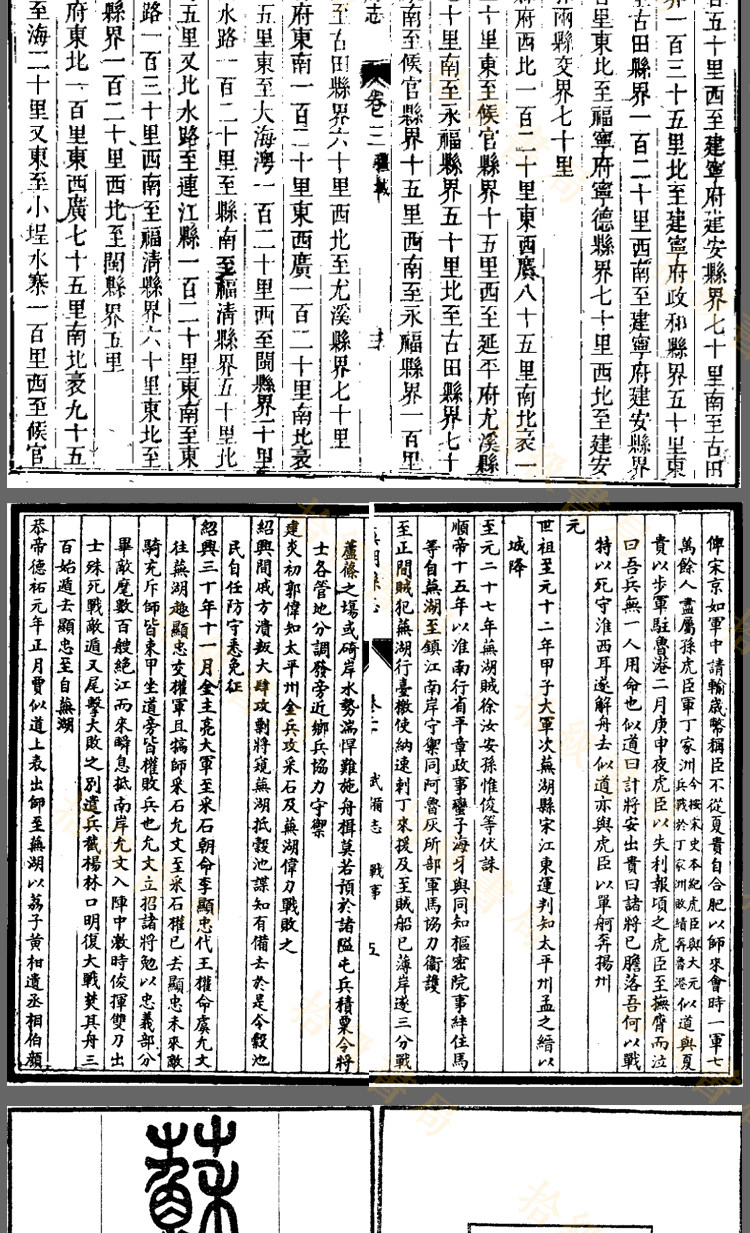 五十里西至建寧府建安縣界七十里南至古田
界一百三十五里北至建寧府政和縣界五十里東
古田縣界一百二十里西南至建寧府建安縣界
里東北至福寧府寧德縣界七十里西北至建安
兩縣交界七十里
府西北一百二十里東西廣八十五里南北袤一
二十里東至候官縣界十五里西至延平府尤溪縣
七十里南至永福縣界五十里北至古田縣界七十
南至候官縣界十五里西南至永福縣界一百里
志 卷之三 疆域 三
至古田縣界六十里西北至尤溪縣界七十里
府東南一百二十里東西廣一百二十里南北袤
五里東至大海灣一百二十里西至閩縣界二十里
水路一百二十里至縣南至福清縣界五十里北
五里又北水路至連江縣一百二十里東南至東
路一百三十里西南至福清縣界六十里東北至
縣界一百二十里西北至閩縣界五里
府東北一百里東西廣七十五里南北袤九十五
至海二十里又東至小埕水寨一百里西至候官
俾宋京如軍中請輸歲幣稱臣不從夏貴自合肥以師來會時一軍七
萬餘人盡屬孫虎臣軍丁家洲今按宋史本紀虎臣與大元兵戰於丁家洲敗績奔魯港似道與夏
貴以步軍駐魯港二月庚申夜虎臣以失利報頃之虎臣至撫膺而泣
曰吾兵無一人用命也似道曰計將安出貴曰諸將已膽落吾何以戰
特以死守淮西耳遂解舟去似道亦與虎臣以單舸奔揚州
元
世祖至元十二年甲子大軍次蕪湖縣宋江東運判知太平州孟之縉以
城降
至元二十七年蕪湖賊徐汝安孫惟俊等伏誅
順帝十五年以淮南行省平章政事蠻子海牙與同知樞密院事絆住馬
等自蕪湖至鎮江南岸守禦同阿魯灰所部軍馬協力衞護
至正間賊犯蕪湖行臺檄使納速剌丁來援及至賊船已薄岸遂三分戰
蕪湖縣志 武備志 戰事 五
蘆篠之場或碕岸水勢湍悍難施舟楫莫若預於諸隘屯兵積粟令將
士各管地分調發旁近鄉兵協力守禦
建炎初郭偉知太平州金兵攻采石及蕪湖偉力戰敗之
紹興間戚方潰叛大肆攻剽將窺蕪湖抵穀池諜知有備去於是令穀池
民自任防守悉免征
紹興三十年十一月金主亮大軍至采石朝命李顯忠代王權命虞允文
往蕪湖趣顯忠交權軍且犒師采石允文至采石權已去顯忠未來敵
騎充斥師皆束甲坐道旁皆權敗兵也允文立招諸將勉以忠義部分
畢敵麾數百艘絕江而來瞬息抵南岸允文入陣中激時俊揮雙刀出
士殊死戰敵遁又尾擊大敗之別遣兵截楊林口明復大戰焚其舟三
百始遁去顯忠至自蕪湖
恭帝德祐元年正月賈似道上表出師至蕪湖以荔子黃柑遺丞相伯顏
蘇